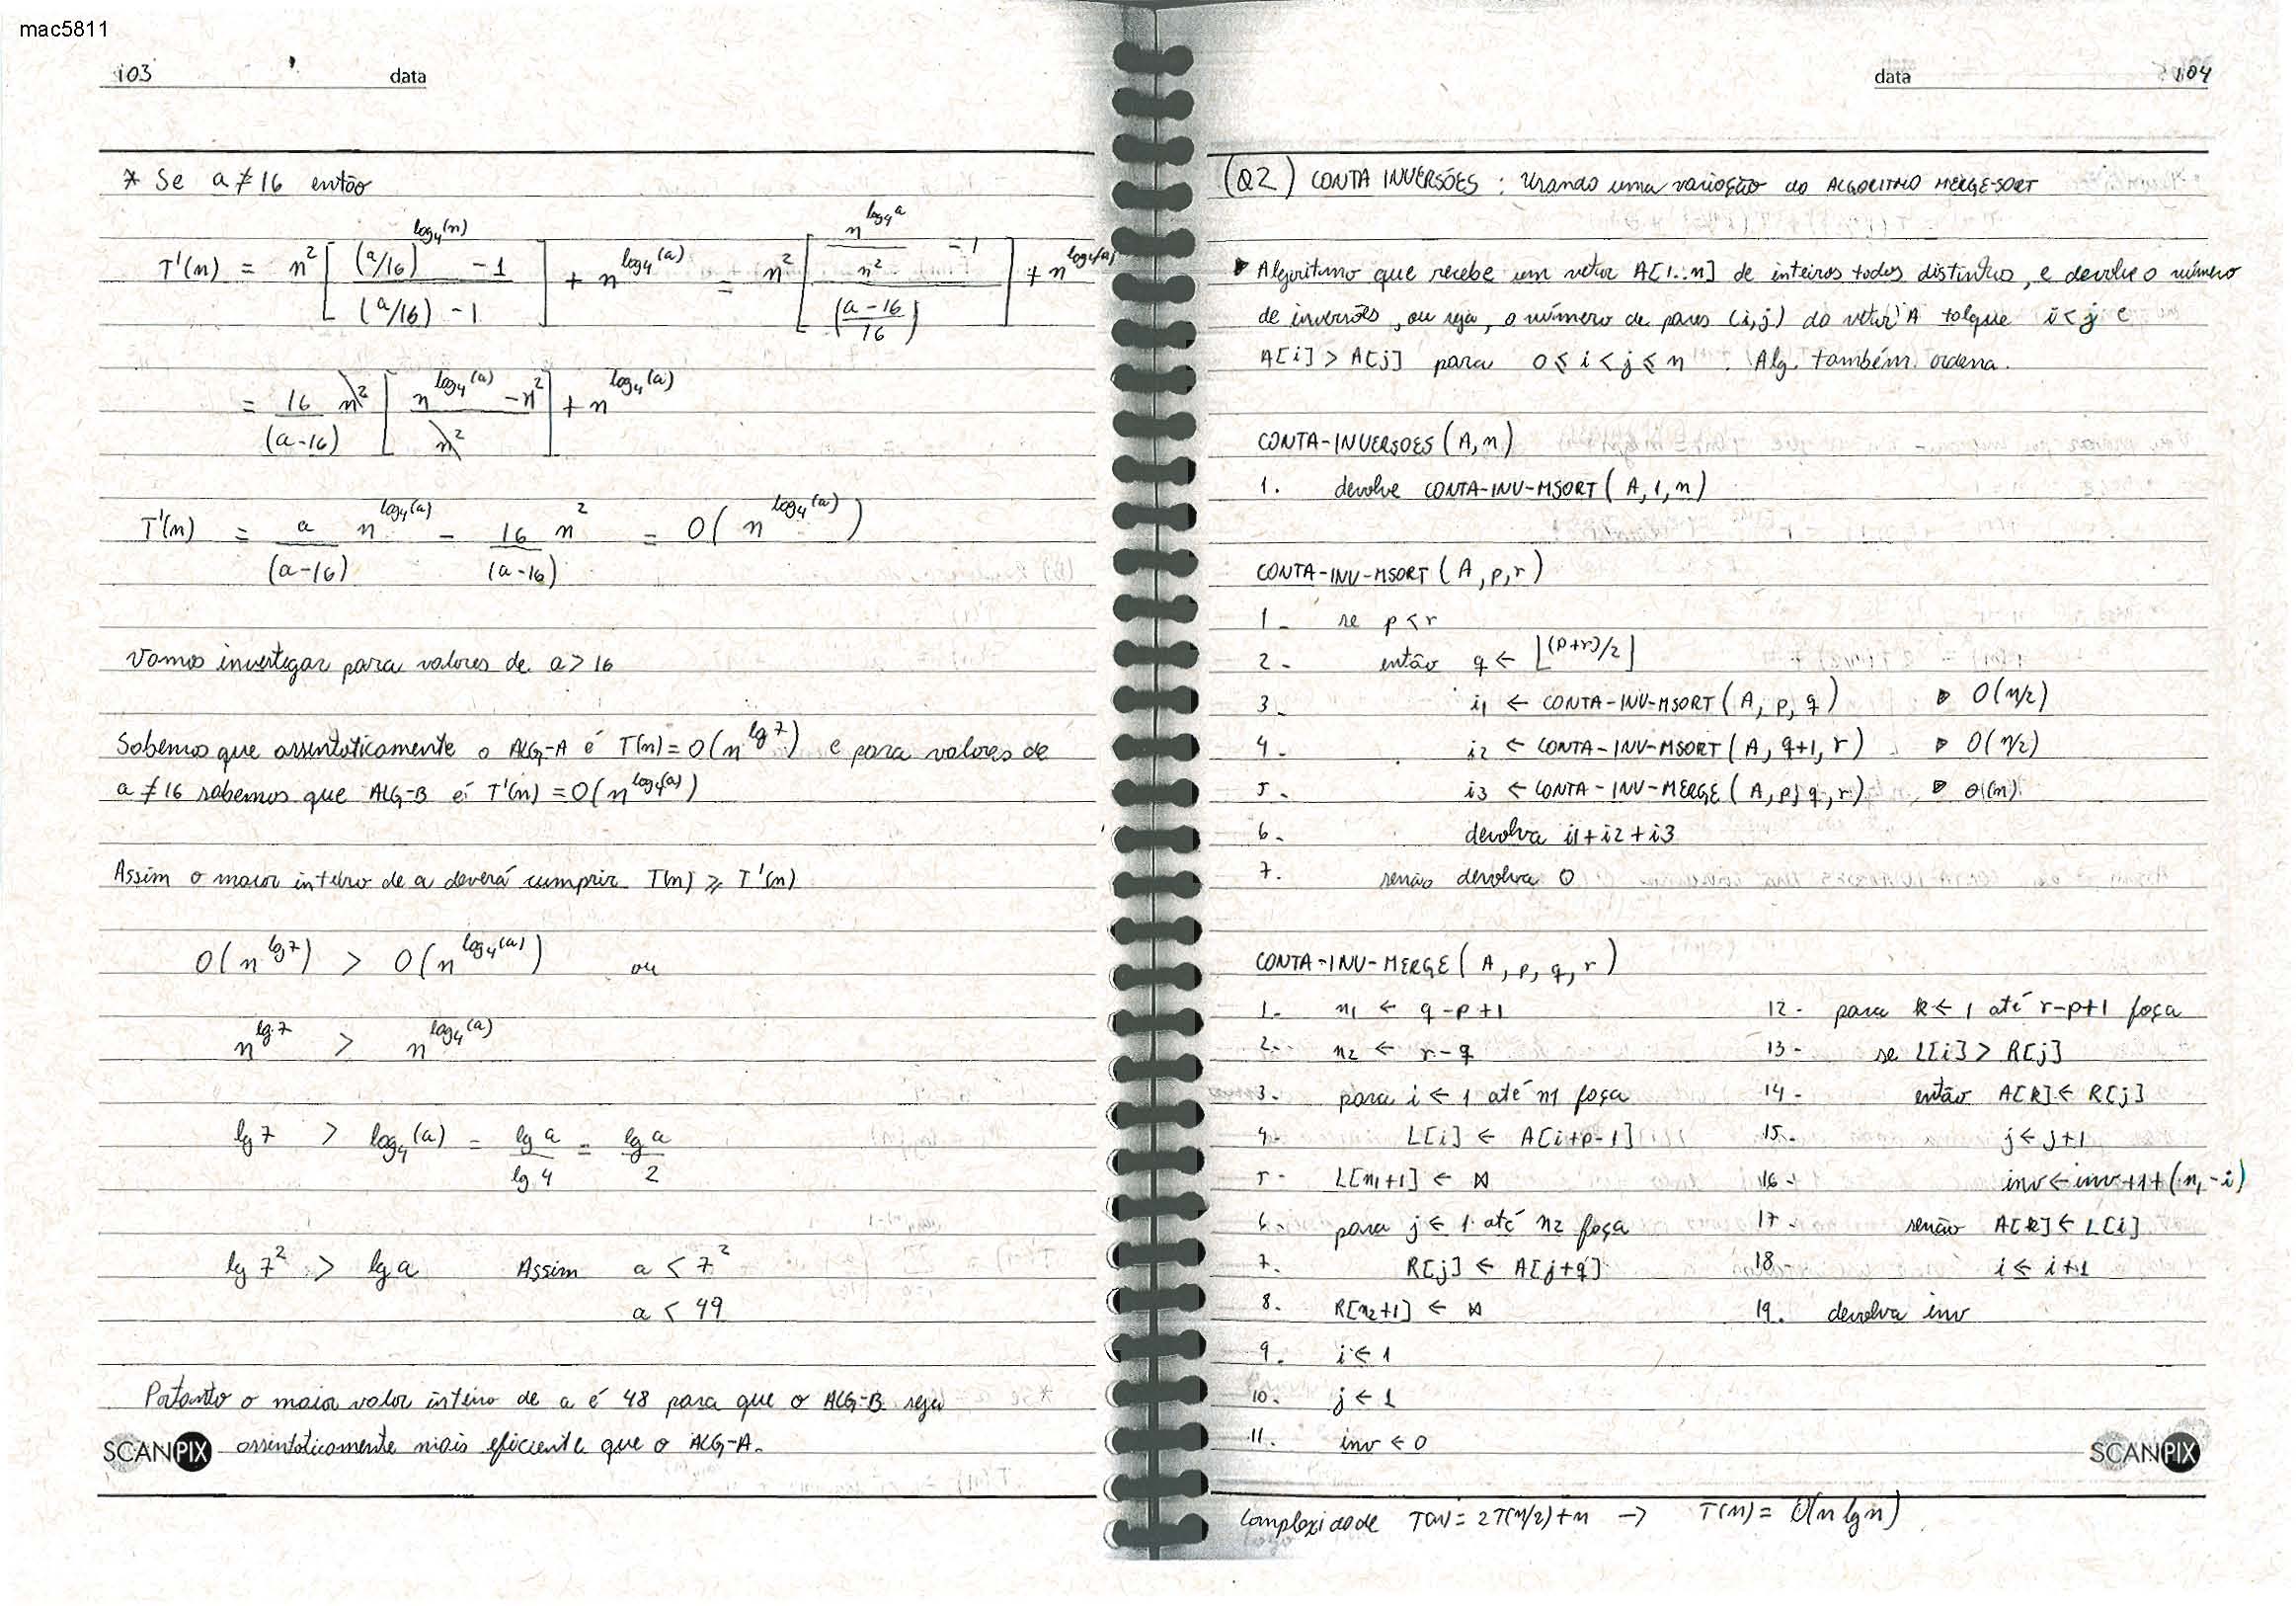 mac5811
103 data
* Se a ≠ 16 então
T'(n) = n² [ ((a/16)^log₄(n) - 1) / ((a/16) - 1) ] + n^log₄(a) = n² [ (n^log₄a / n² - 1) / ((a-16)/16) ] + n^log₄(a)
= 16/(a-16) n² [ (n^log₄(a) - n²) / n² ] + n^log₄(a)
T'(n) = a/(a-16) n^log₄(a) - 16/(a-16) n² = O( n^log₄(a) )
Vamos investigar para valores de a > 16
Sabemos que assintoticamente o ALG-A é T(n) = O(n^lg 7) e para valores de
a ≠ 16 sabemos que ALG-B é T'(n) = O(n^log₄(a))
Assim o maior inteiro de a deverá cumprir T(n) ⩾ T'(n)
O(n^lg 7) > O(n^log₄(a)) ou
n^lg 7 > n^log₄(a)
lg 7 > log₄(a) = lg a / lg 4 = lg a / 2
lg 7² > lg a Assim a < 7²
a < 49
Portanto o maior valor inteiro de a é 48 para que o ALG-B seja
assintoticamente mais eficiente que o ALG-A.
SCANPIX
data 104
(Q2) CONTA INVERSÕES : Usando uma variação do ALGORITMO MERGE-SORT
▶ Algoritmo que recebe um vetor A[1..n] de inteiros todos distintos, e devolve o número
de inversões, ou seja, o número de pares (i,j) do vetor A tal que i < j e
A[i] > A[j] para 0 ⩽ i < j ⩽ n . Alg. também ordena.
CONTA-INVERSOES (A, n)
1. devolve CONTA-INV-MSORT( A, 1, n)
CONTA-INV-MSORT ( A, p, r)
1- se p < r
2- então q ← ⌊(p+r)/2⌋
3- i1 ← CONTA-INV-MSORT( A, p, q) ▷ O(n/2)
4- i2 ← CONTA-INV-MSORT( A, q+1, r) ▷ O(n/2)
5- i3 ← CONTA-INV-MERGE( A, p, q, r) ▷ Θ(n)
6- devolva i1 + i2 + i3
7. senão devolva 0
CONTA-INV-MERGE( A, p, q, r )
1- n1 ← q-p+1
2- n2 ← r-q
3- para i ← 1 até n1 faça
4- L[i] ← A[i+p-1]
5- L[n1+1] ← ∞
6- para j ← 1 até n2 faça
7. R[j] ← A[j+q]
8. R[n2+1] ← ∞
9. i ← 1
10. j ← 1
11. inv ← 0
12- para k ← 1 até r-p+1 faça
13- se L[i] > R[j]
14- então A[k] ← R[j]
15. j ← j+1
16- inv ← inv + 1 + (n1 - i)
17- senão A[k] ← L[i]
18- i ← i+1
19. devolva inv
SCANPIX
Complexidade T(n) = 2T(n/2) + n → T(n) = O(n lg n)